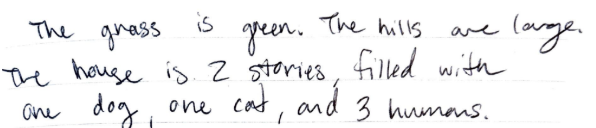 The grass is green. The hills are large.
The house is 2 stories, filled with
one dog, one cat, and 3 humans.